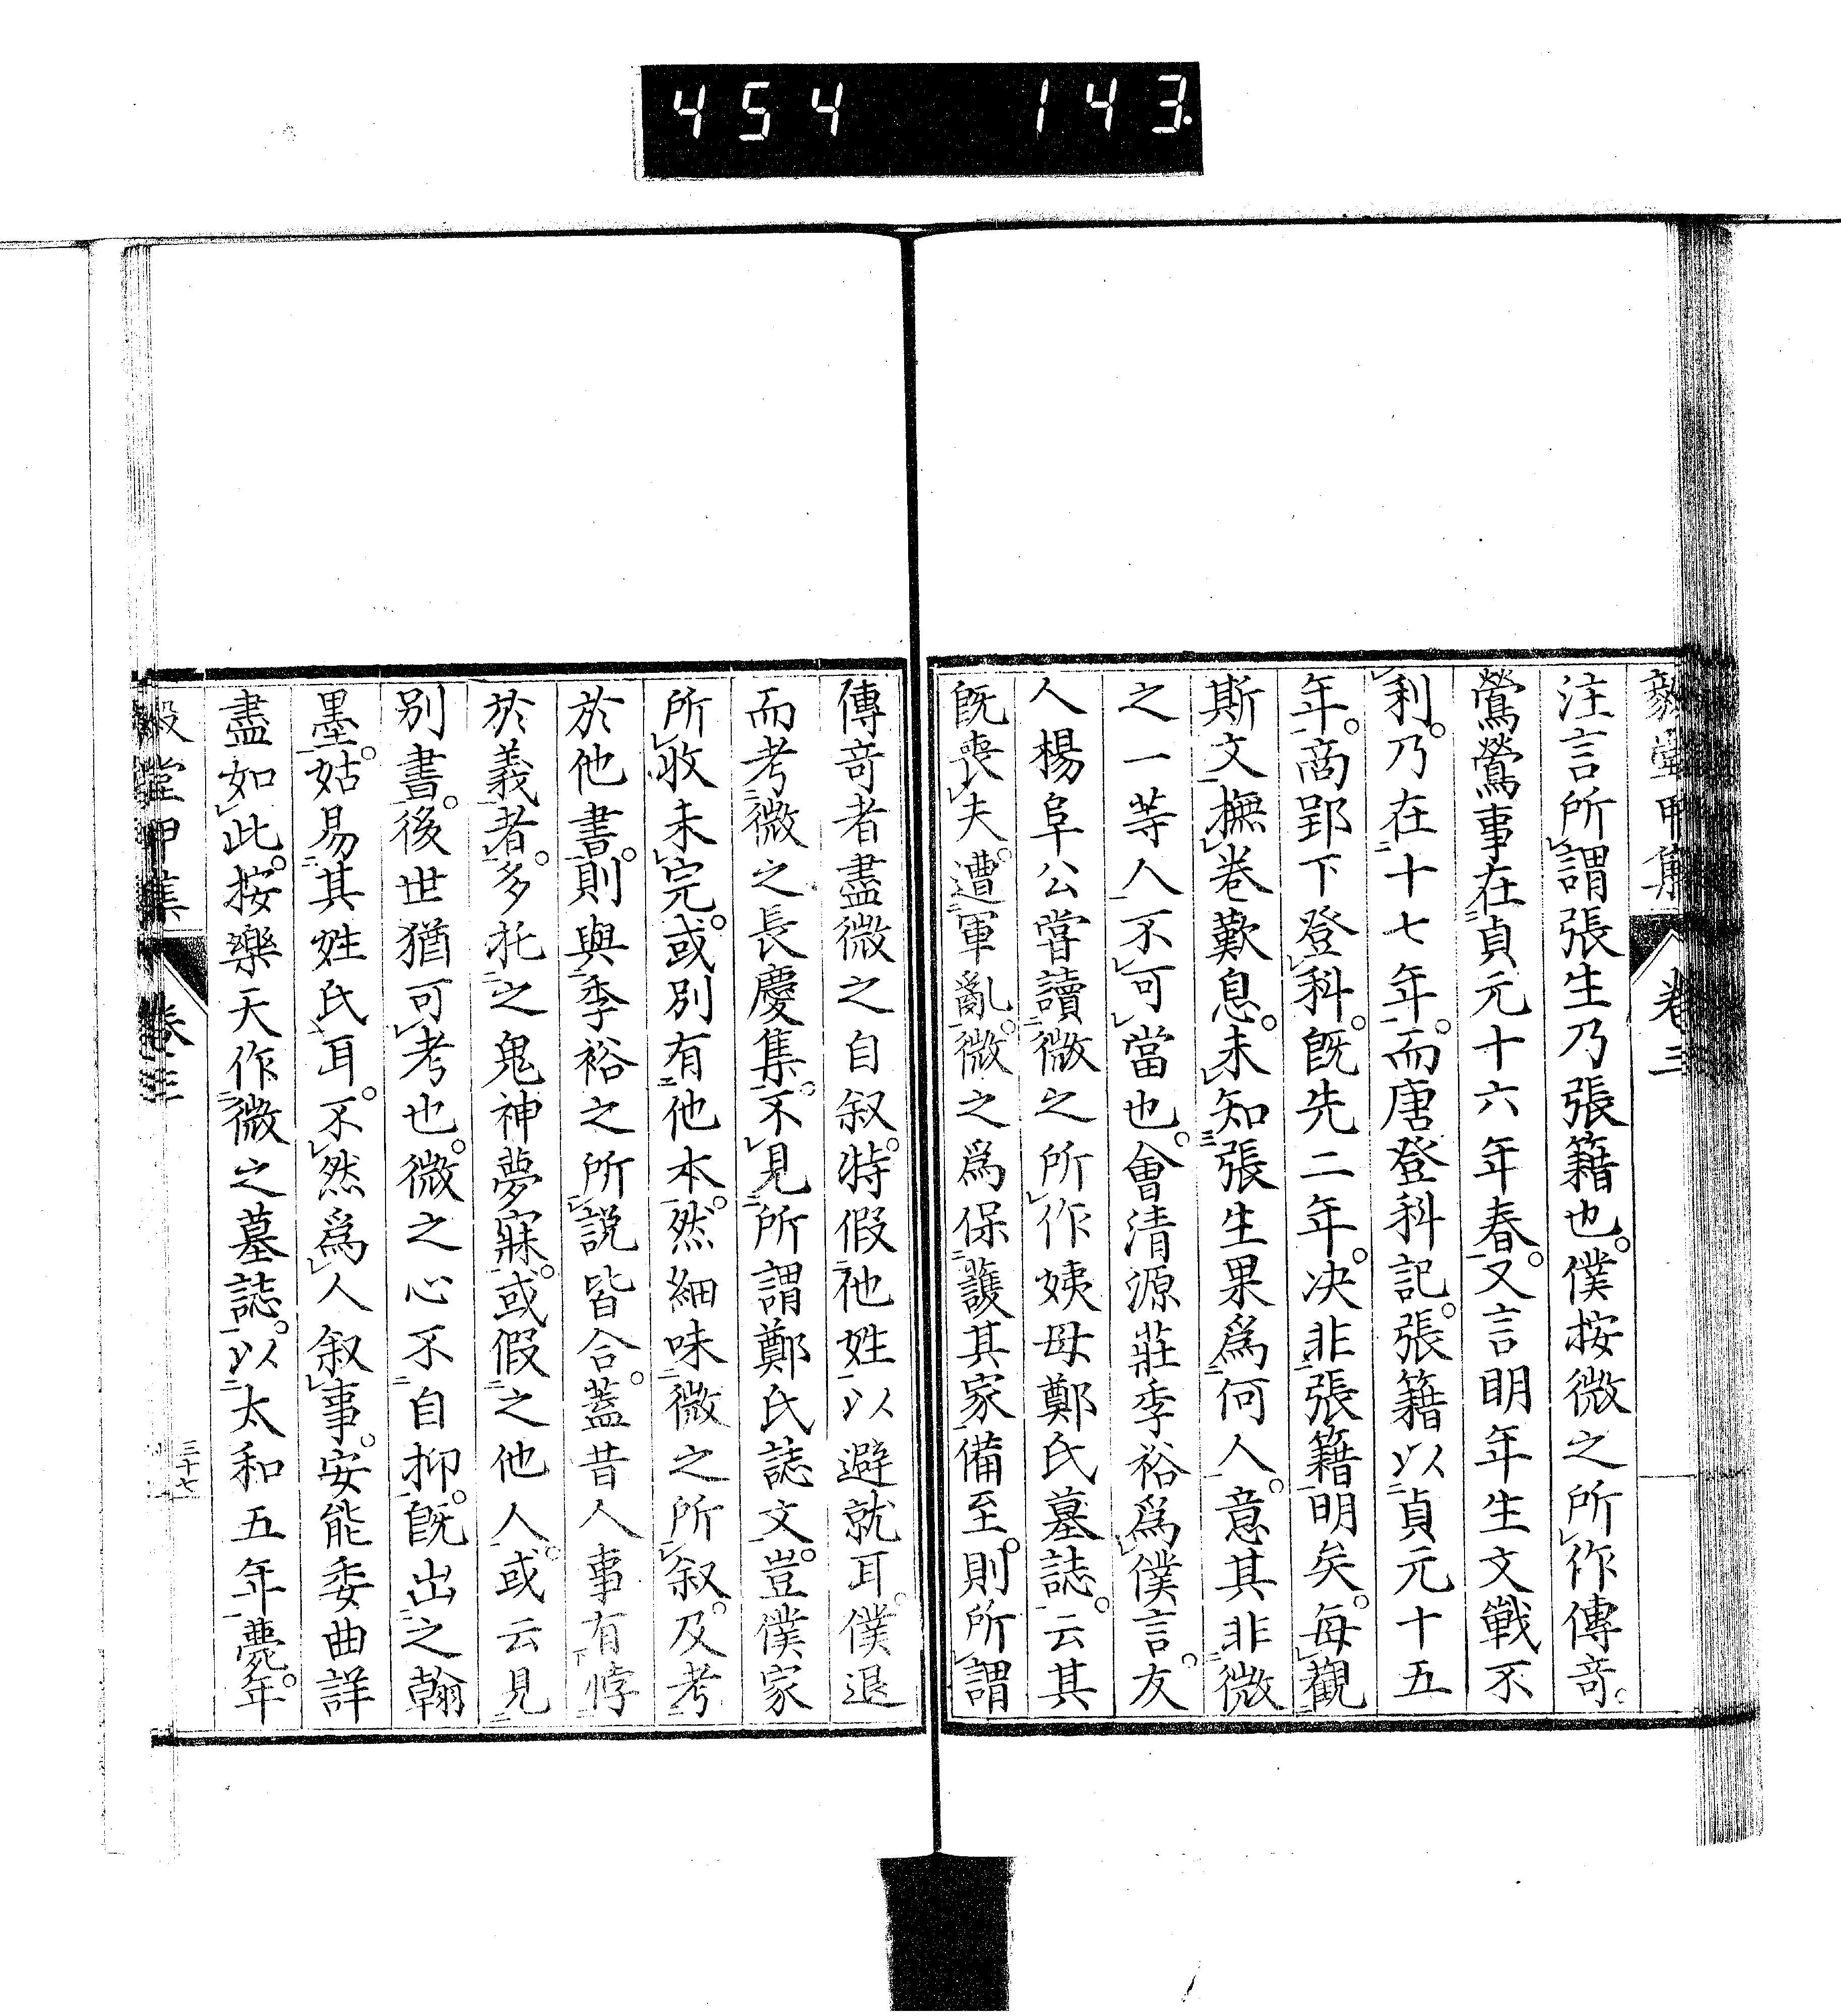 454 143
注言所謂張生乃張籍也。僕按微之所作傳奇。
鶯鶯事在貞元十六年春。又言明年生文戰不
利。乃在十七年。而唐登科記。張籍以貞元十五
年。商郢下登科。旣先二年。决非張籍明矣。每觀
斯文。撫卷歎息。未知張生果爲何人。意其非微
之一等人。不可當也。會清源莊季裕爲僕言。友
人楊阜公嘗讀微之所作姨母鄭氏墓誌。云其
旣喪夫。遭軍亂。微之爲保護其家備至。則所謂
傳奇者盡微之自叙。特假他姓以避就耳。僕退
而考微之長慶集。不見所謂鄭氏誌文。豈僕家
所收未完。或別有他本。然細味微之所叙。及考
於他書。則與季裕之所説皆合。蓋昔人事有悖
於義者。多托之鬼神夢寐。或假之他人。或云見
別書。後世猶可考也。微之心不自抑。旣出之翰
墨。姑易其姓氏耳。不然爲人叙事。安能委曲詳
盡如此。按樂天作微之墓誌。以太和五年薨年。
毅堂甲集
卷三
三十七